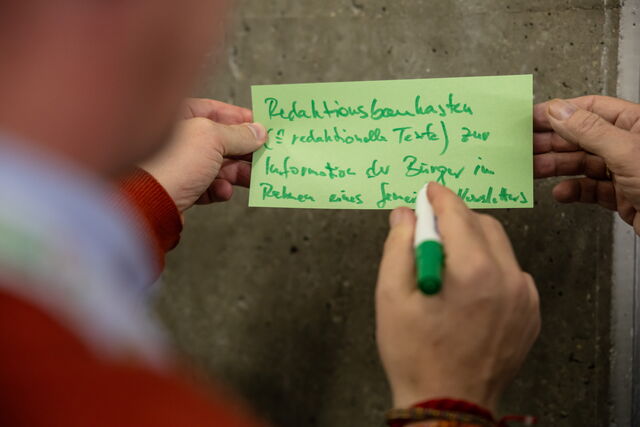 Redaktionsbaukasten
(= redaktionelle Texte) zur
Information der Bürger im
Rahmen eines Newsletters